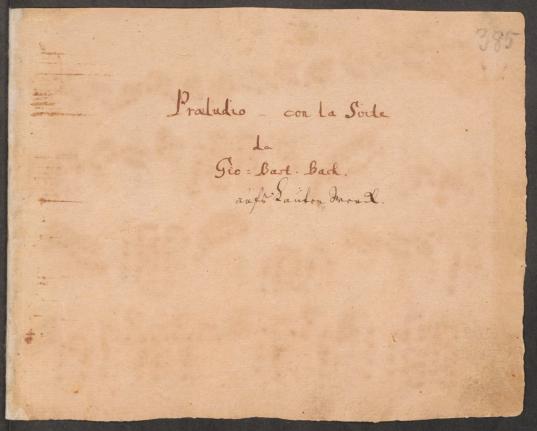 385
Præludio – con la Svite
da
Gio: Bast. Bach.
aufs Lauten Werck.